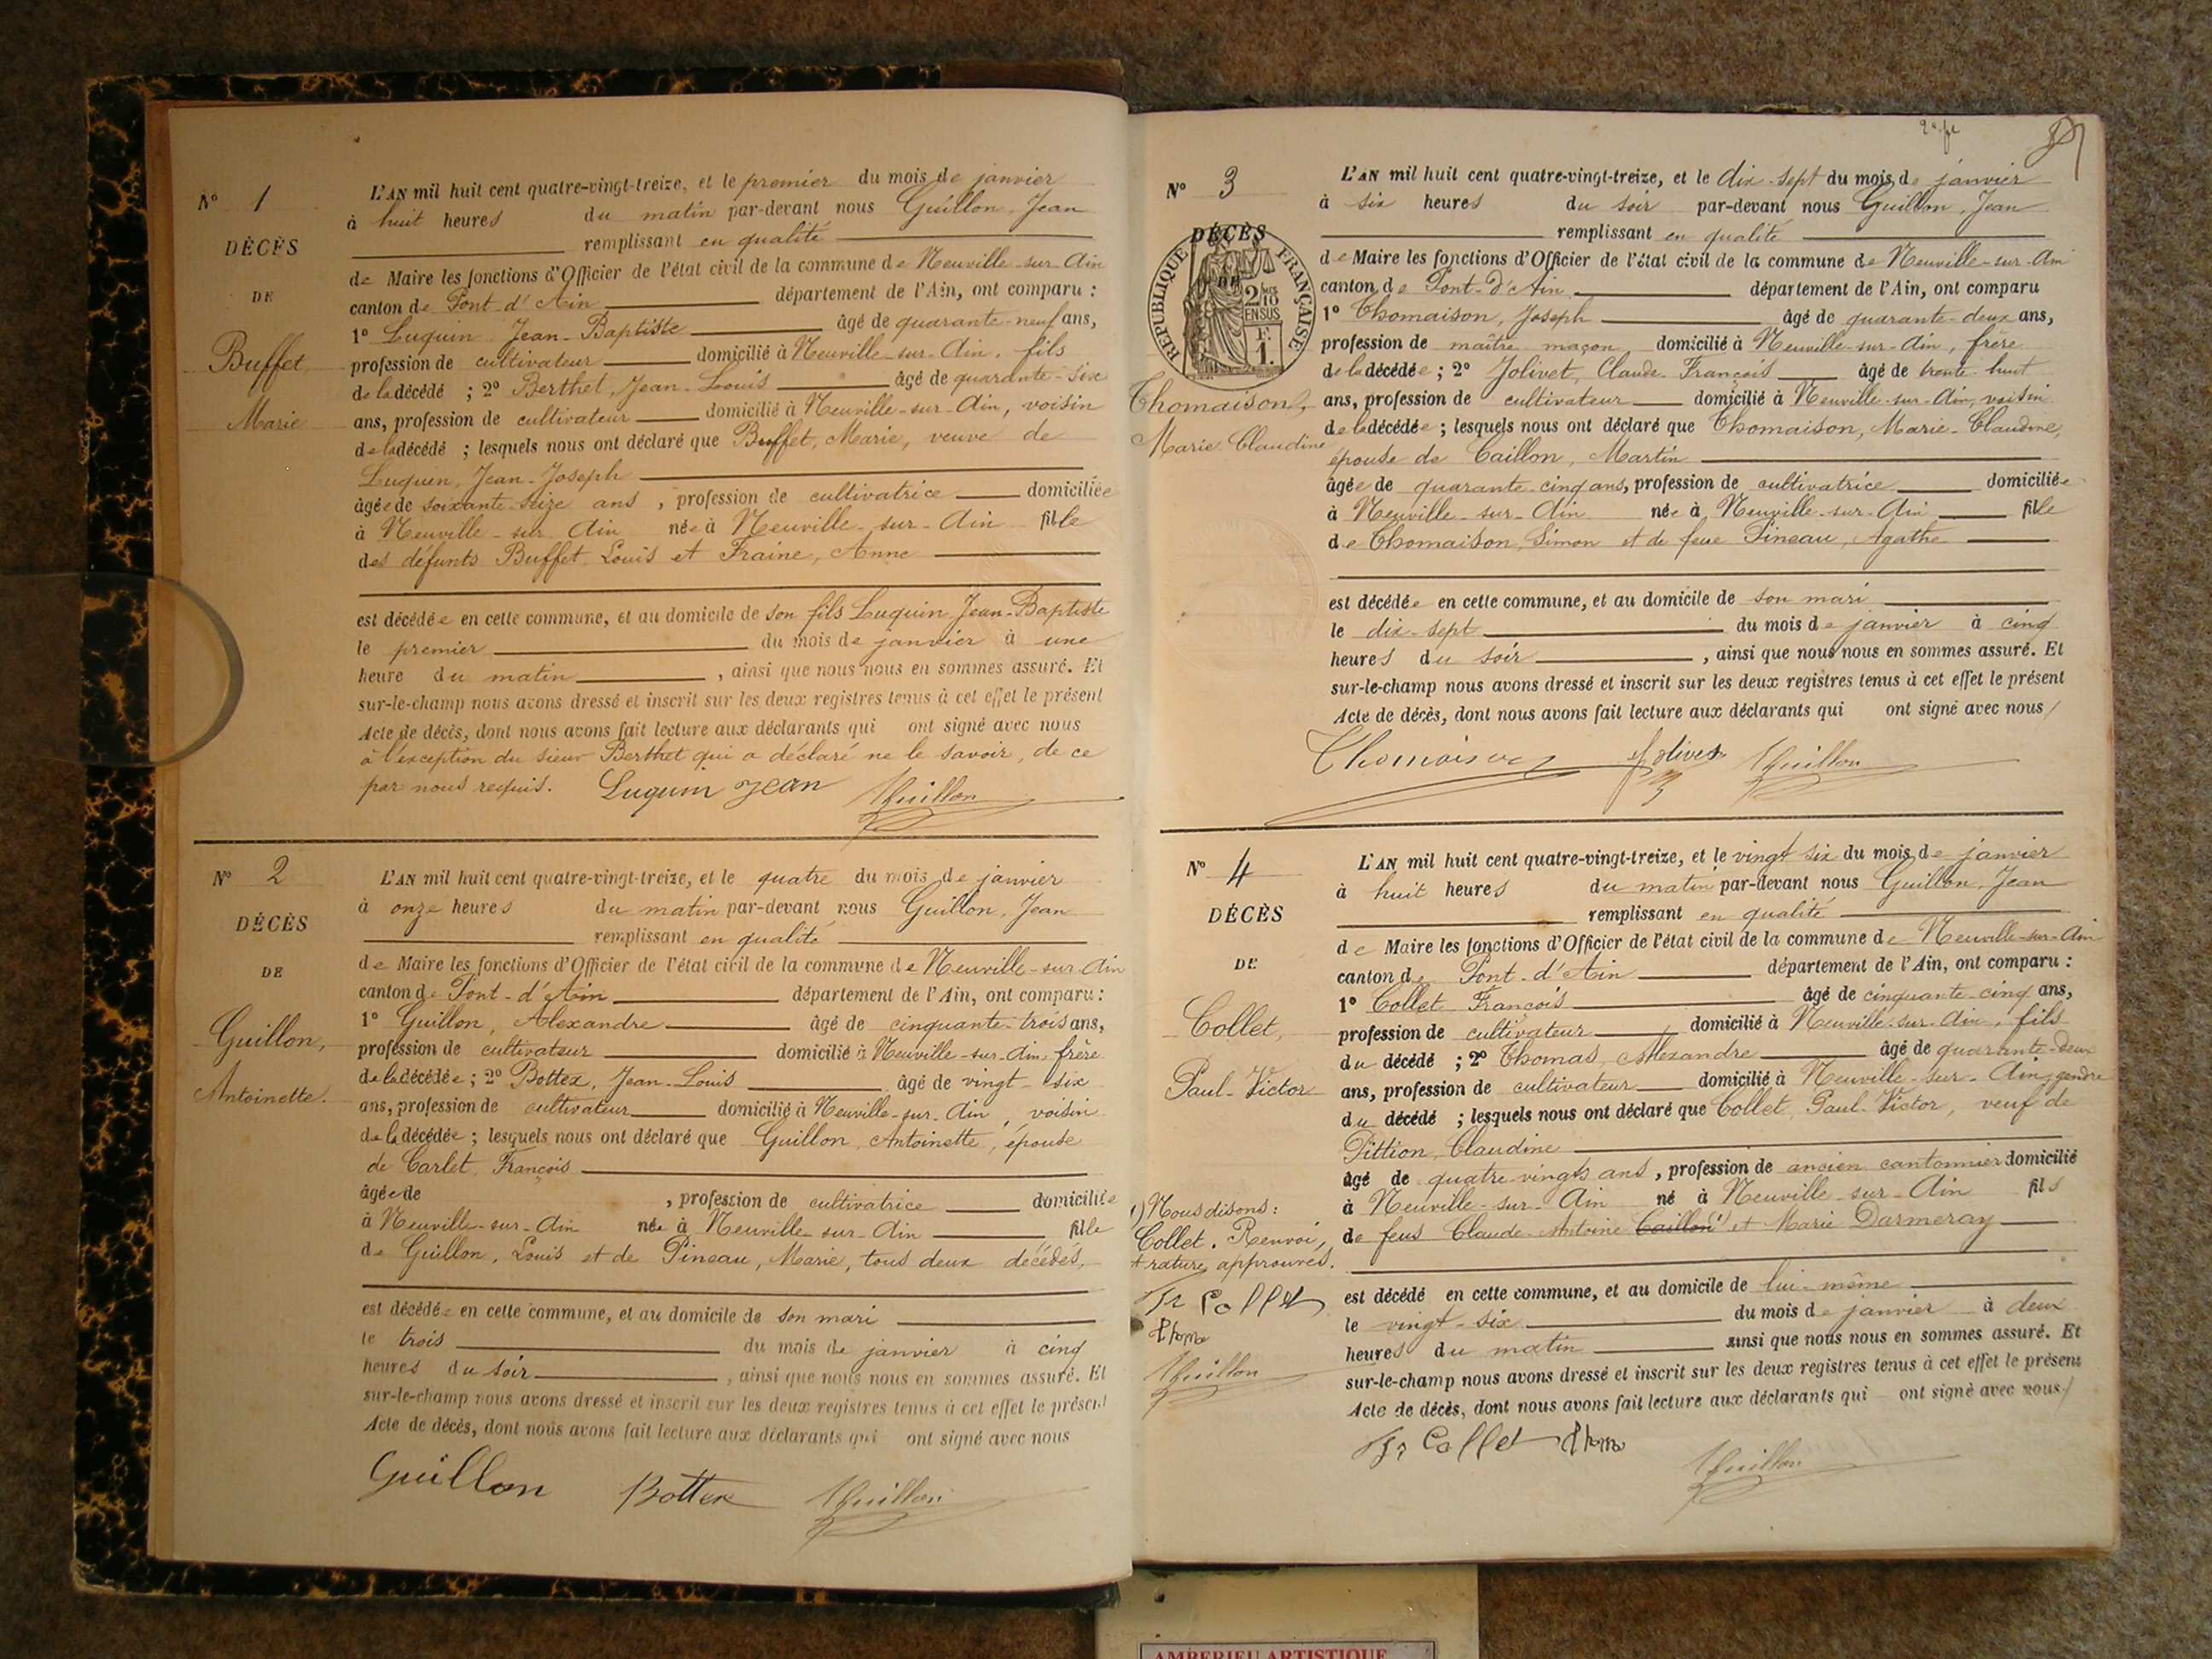 N° 1
DÉCÈS
DE
Buffet
Marie
L'AN mil huit cent quatre-vingt-treize, et le premier du mois de janvier
à huit heures du matin par-devant nous Guillon, Jean
remplissant en qualité
de Maire les fonctions d'Officier de l'état civil de la commune de Neuville-sur-Ain
canton de Pont-d'Ain département de l'Ain, ont comparu :
1° Luquin Jean-Baptiste âgé de quarante-neuf ans,
profession de cultivateur domicilié à Neuville-sur-Ain, fils
de la décédé ; 2° Berthet, Jean-Louis âgé de quarante-six
ans, profession de cultivateur domicilié à Neuville-sur-Ain, voisin
de la décédé ; lesquels nous ont déclaré que Buffet, Marie, veuve de
Luquin, Jean-Joseph
âgée de soixante-seize ans, profession de cultivatrice domiciliée
à Neuville-sur-Ain née à Neuville-sur-Ain fille
des défunts Buffet Louis et Fraine, Anne
est décédée en cette commune, et au domicile de son fils Luquin, Jean-Baptiste
le premier du mois de janvier à une
heure du matin, ainsi que nous nous en sommes assuré. Et
sur-le-champ nous avons dressé et inscrit sur les deux registres tenus à cet effet le présent
Acte de décès, dont nous avons fait lecture aux déclarants qui ont signé avec nous
à l'exception du sieur Berthet qui a déclaré ne le savoir, de ce
par nous requis. Luquin Jean JGuillon
N° 2
DÉCÈS
DE
Guillon,
Antoinette.
L'AN mil huit cent quatre-vingt-treize, et le quatre du mois de janvier
à onze heures du matin par-devant nous Guillon, Jean
remplissant en qualité
de Maire les fonctions d'Officier de l'état civil de la commune de Neuville-sur-Ain
canton de Pont-d'Ain département de l'Ain, ont comparu :
1° Guillon, Alexandre âgé de cinquante-trois ans,
profession de cultivateur domicilié à Neuville-sur-Ain, frère
de la décédée ; 2° Bottex, Jean-Louis âgé de vingt-six
ans, profession de cultivateur domicilié à Neuville-sur-Ain, voisin
de la décédée ; lesquels nous ont déclaré que Guillon, Antoinette, épouse
de Carlet, François
âgée de , profession de cultivatrice domiciliée
à Neuville-sur-Ain née à Neuville-sur-Ain fille
de Guillon, Louis et de Pineau, Marie, tous deux décédés,
est décédée en cette commune, et au domicile de son mari
le trois du mois de janvier à cinq
heures du soir, ainsi que nous nous en sommes assuré. Et
sur-le-champ nous avons dressé et inscrit sur les deux registres tenus à cet effet le présent
Acte de décès, dont nous avons fait lecture aux déclarants qui ont signé avec nous
Guillon Bottex JGuillon
N° 3
DÉCÈS
DE
RÉPUBLIQUE FRANÇAISE
2/10
EN SUS
F.
1.
Thomaison,
Marie-Claudine
L'AN mil huit cent quatre-vingt-treize, et le dix-sept du mois de janvier
à six heures du soir par-devant nous Guillon, Jean
remplissant en qualité
de Maire les fonctions d'Officier de l'état civil de la commune de Neuville-sur-Ain
canton de Pont-d'Ain département de l'Ain, ont comparu
1° Thomaison, Joseph âgé de quarante-deux ans,
profession de maître maçon domicilié à Neuville-sur-Ain, frère
de la décédée ; 2° Jolivet, Claude-François âgé de trente-huit
ans, profession de cultivateur domicilié à Neuville-sur-Ain, voisin
de la décédée ; lesquels nous ont déclaré que Thomaison, Marie-Claudine,
épouse de Caillon, Martin
âgée de quarante-cinq ans, profession de cultivatrice domiciliée
à Neuville-sur-Ain née à Neuville-sur-Ain fille
de Thomaison, Simon et de feue Pineau, Agathe
est décédée en cette commune, et au domicile de son mari
le dix-sept du mois de janvier à cinq
heures du soir, ainsi que nous nous en sommes assuré. Et
sur-le-champ nous avons dressé et inscrit sur les deux registres tenus à cet effet le présent
Acte de décès, dont nous avons fait lecture aux déclarants qui ont signé avec nous
Thomaison Jolivet JGuillon
N° 4
DÉCÈS
DE
Collet,
Paul-Victor
L'AN mil huit cent quatre-vingt-treize, et le vingt six du mois de janvier
à huit heures du matin par-devant nous Guillon, Jean
remplissant en qualité
de Maire les fonctions d'Officier de l'état civil de la commune de Neuville-sur-Ain
canton de Pont-d'Ain département de l'Ain, ont comparu :
1° Collet François âgé de cinquante-cinq ans,
profession de cultivateur domicilié à Neuville-sur-Ain, fils
du décédé ; 2° Thomas, Alexandre âgé de quarante-deux
ans, profession de cultivateur domicilié à Neuville-sur-Ain, gendre
du décédé ; lesquels nous ont déclaré que Collet, Paul-Victor, veuf de
Pittion, Claudine
âgé de quatre-vingts ans, profession de ancien cantonnier domicilié
à Neuville-sur-Ain né à Neuville-sur-Ain fils
de feus Claude-Antoine Caillon (1) et Marie Darmeray
est décédé en cette commune, et au domicile de lui-même
le vingt-six du mois de janvier à deux
heures du matin ainsi que nous nous en sommes assuré. Et
sur-le-champ nous avons dressé et inscrit sur les deux registres tenus à cet effet le présent
Acte de décès, dont nous avons fait lecture aux déclarants qui ont signé avec nous
Fr Collet Thoma JGuillon
1) Nous disons :
Collet. Renvoi,
+ rature approuvés.
Fr Collet
Thoma
JGuillon
AMBERIEU ARTISTIQUE